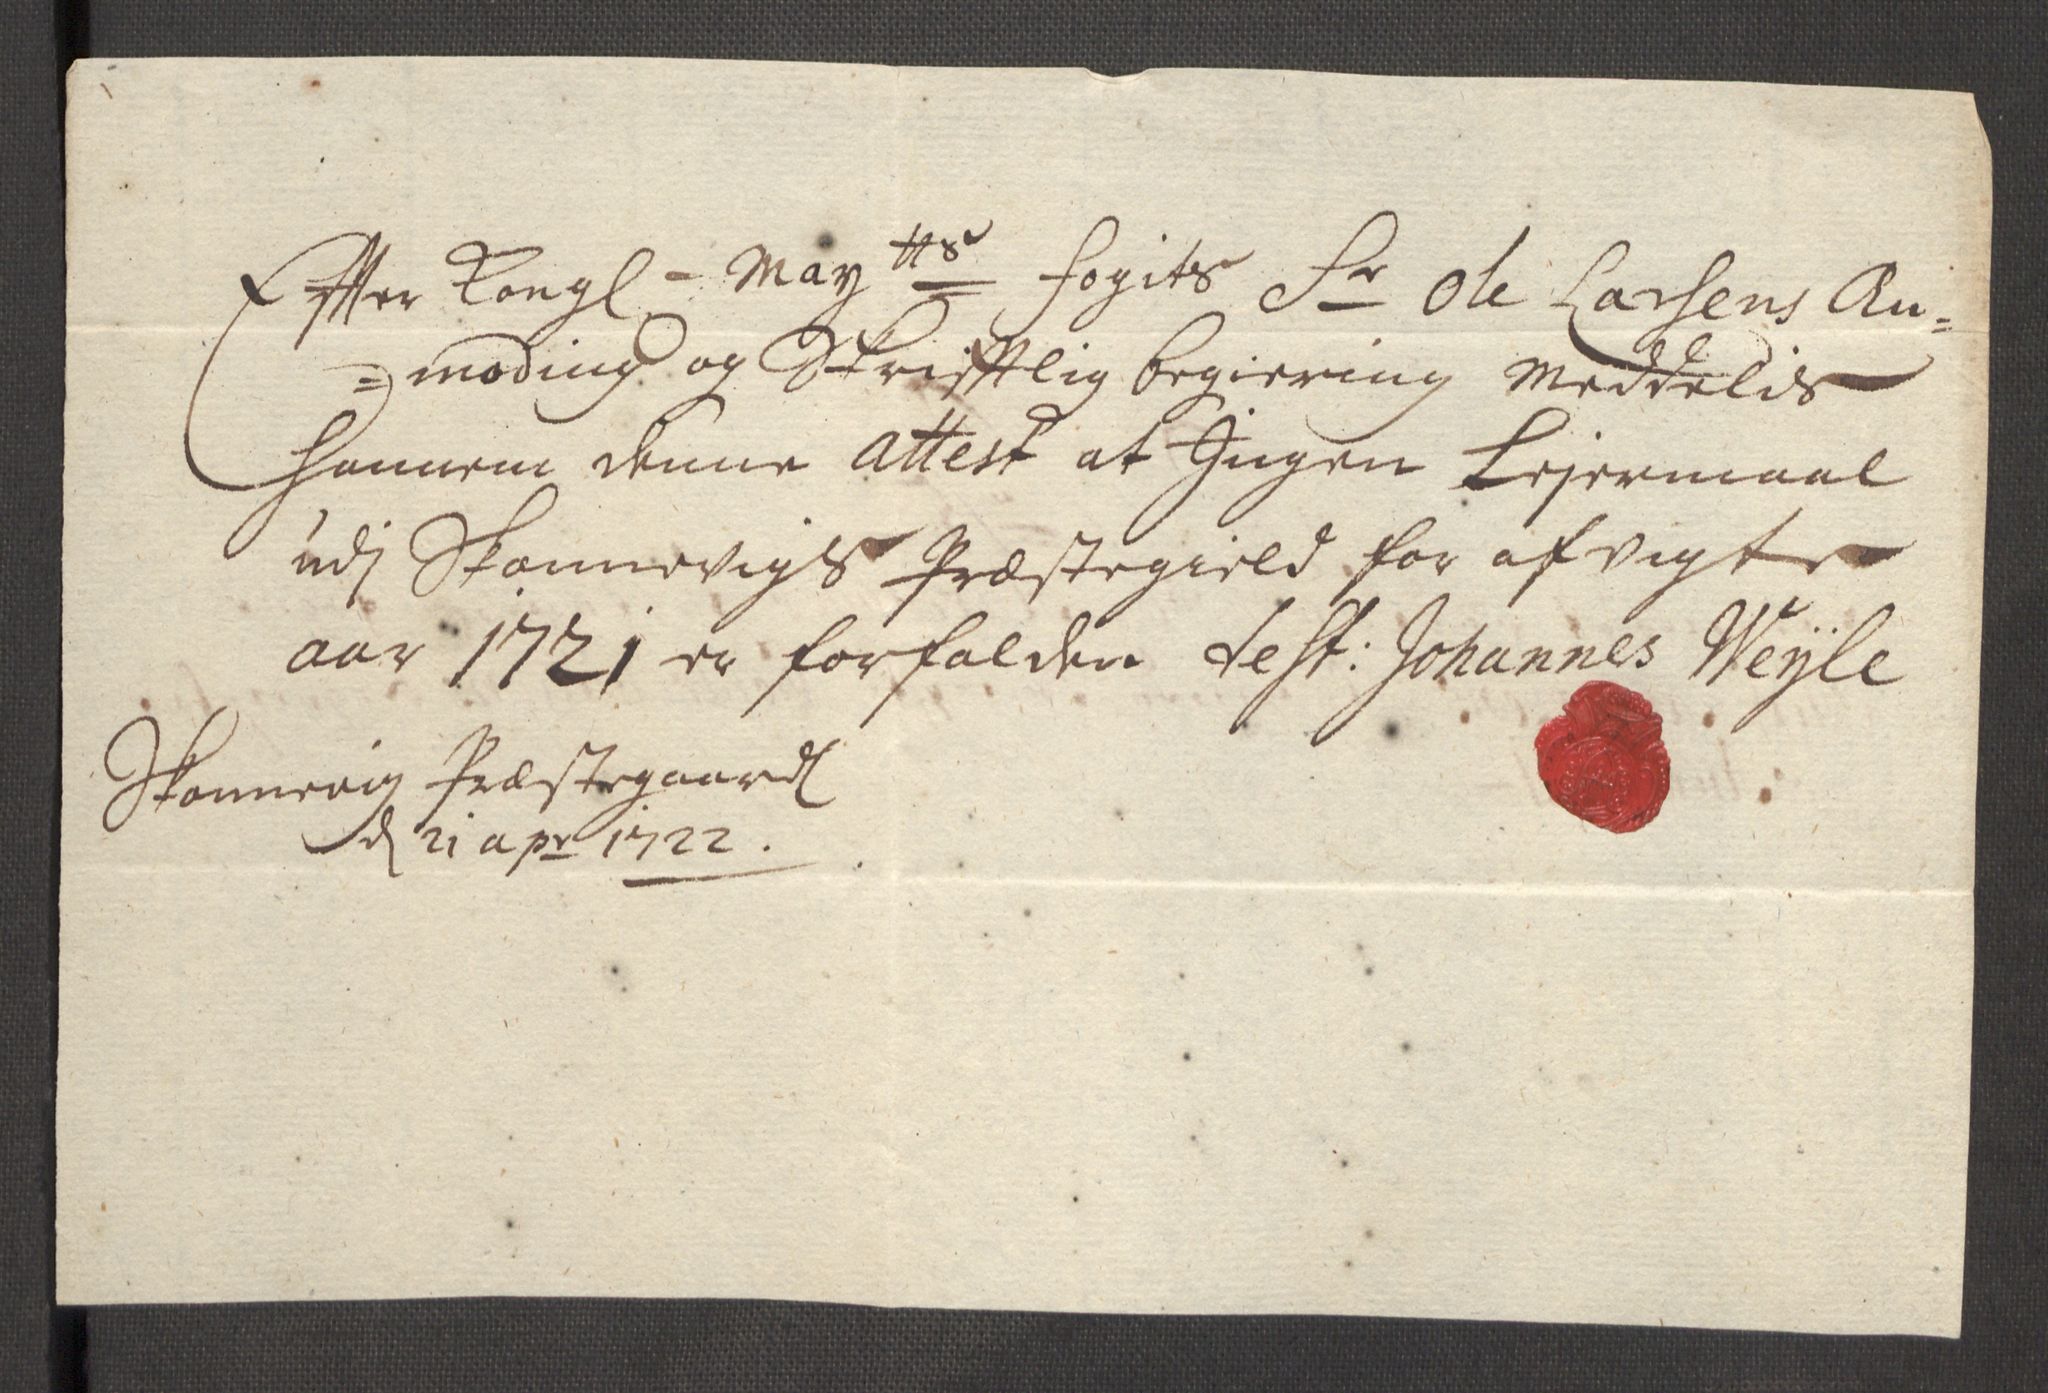 Effter Kongl- May tts fogits Sr Ole Larsens An=
=moding og Skrifftlig begiering Meddelis
hannem denne Attest at Jngen Lejermaal
udj Skonnevigs Præstegield for afvigte
aar 1721 er forfalden test: Johannes Weÿle
Skonnevig Præstegaard
d 21 apr 1722.